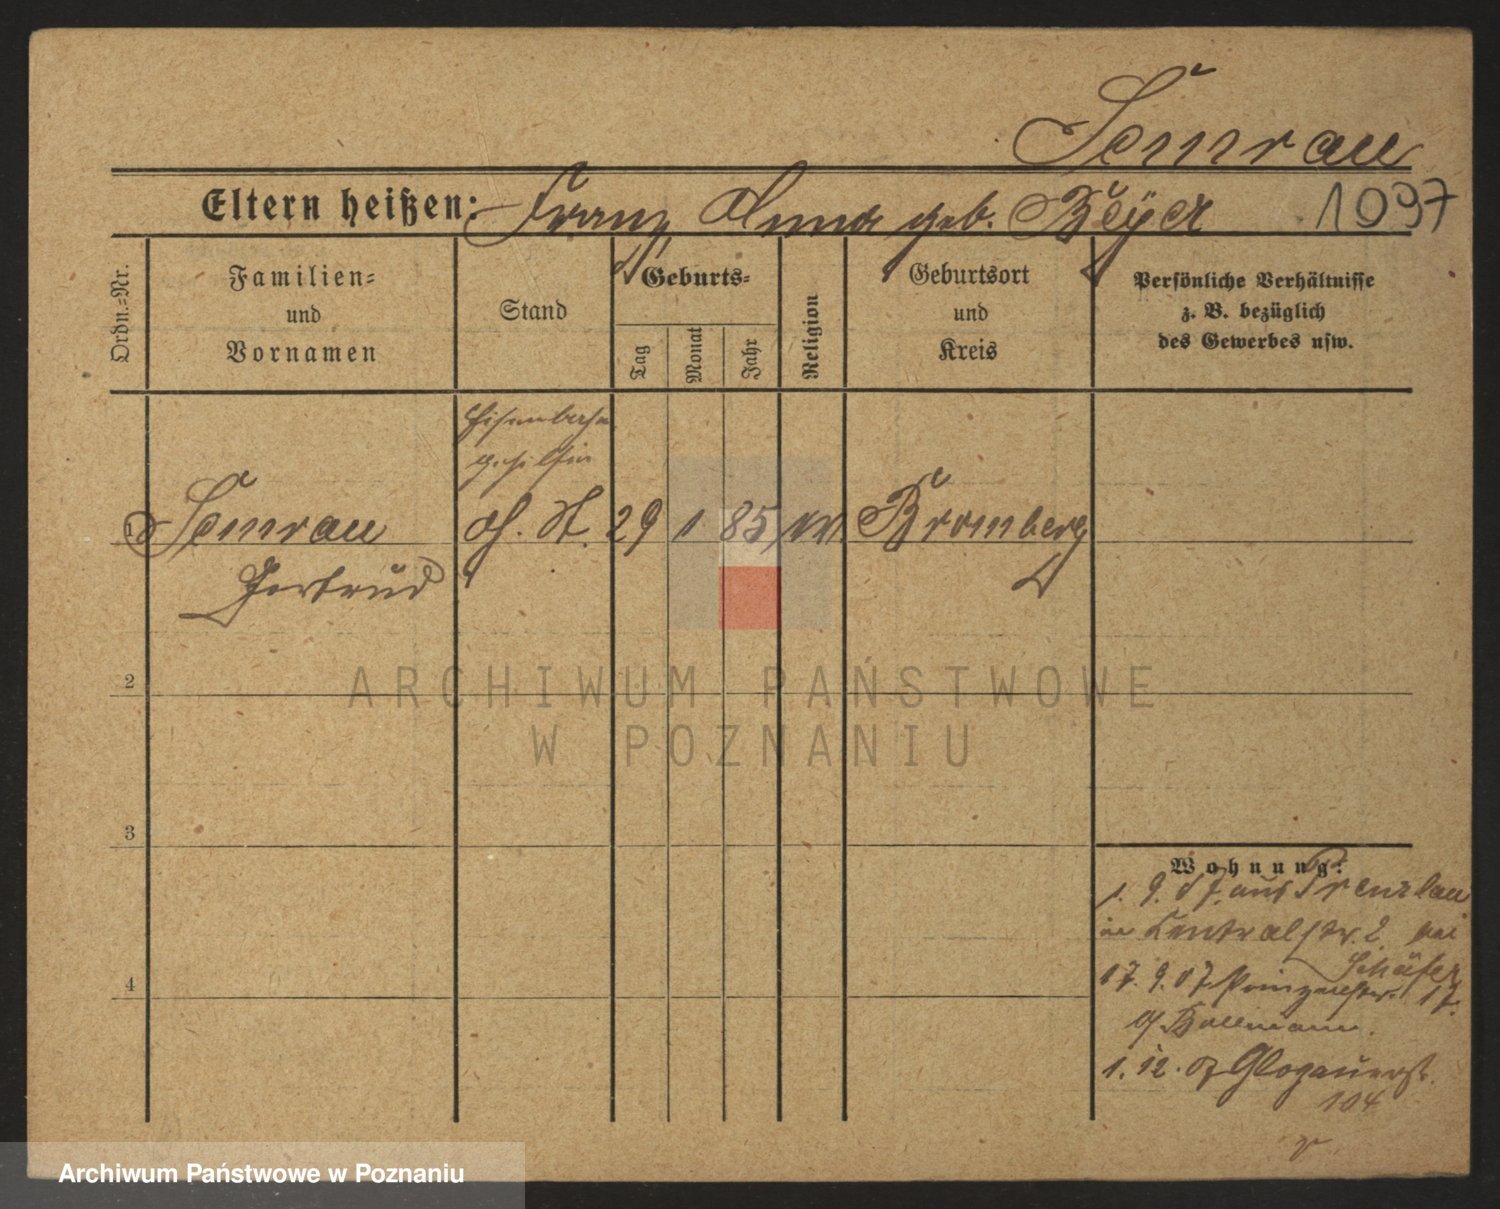 Semrau
Eltern heißen: Franz Anna geb. Beyer 1097
Ordn.-Nr.
Familien-
und
Vornamen
Stand
Geburts-
Tag
Monat
Jahr
Religion
Geburtsort
und
Kreis
Persönliche Verhältnisse
z. B. bezüglich
des Gewerbes usw.
Eisenbahn
gehilfin
1 Semrau 29 1 85 Bromberg
Gertrud
2
ARCHIWUM PAŃSTWOWE
W POZNANIU
3
4
Wohnung:
1. 9. 07. aus Prenzlau
in Centralstr. 2 bei
Schäfer
17. 9. 07 Prinzenstr. 17.
Bollmann.
1. 12. 07 Glogauerst.
104
Archiwum Państwowe w Poznaniu